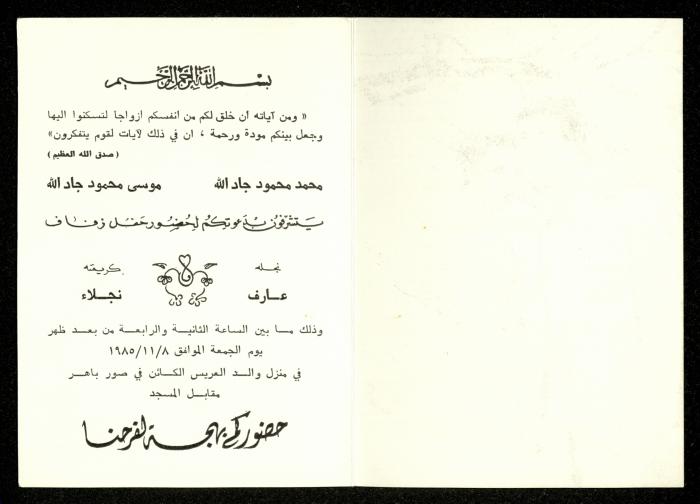 بسم الله الرحمن الرحيم
« ومن آياته أن خلق لكم من أنفسكم أزواجا لتسكنوا اليها
وجعل بينكم مودة ورحمة ، ان في ذلك لآيات لقوم يتفكرون»
( صدق الله العظيم )
محمد محمود جاد الله موسى محمود جاد الله
يتشرفون بدعوتكم لحضور حفل زفاف
نجله كريمته
عارف نجلاء
وذلك ما بين الساعة الثانية والرابعة من بعد ظهر
يوم الجمعة الموافق ١٩٨٥/١١/٨
في منزل والد العريس الكائن في صور باهر
مقابل المسجد
حضوركم بهجة لفرحنا